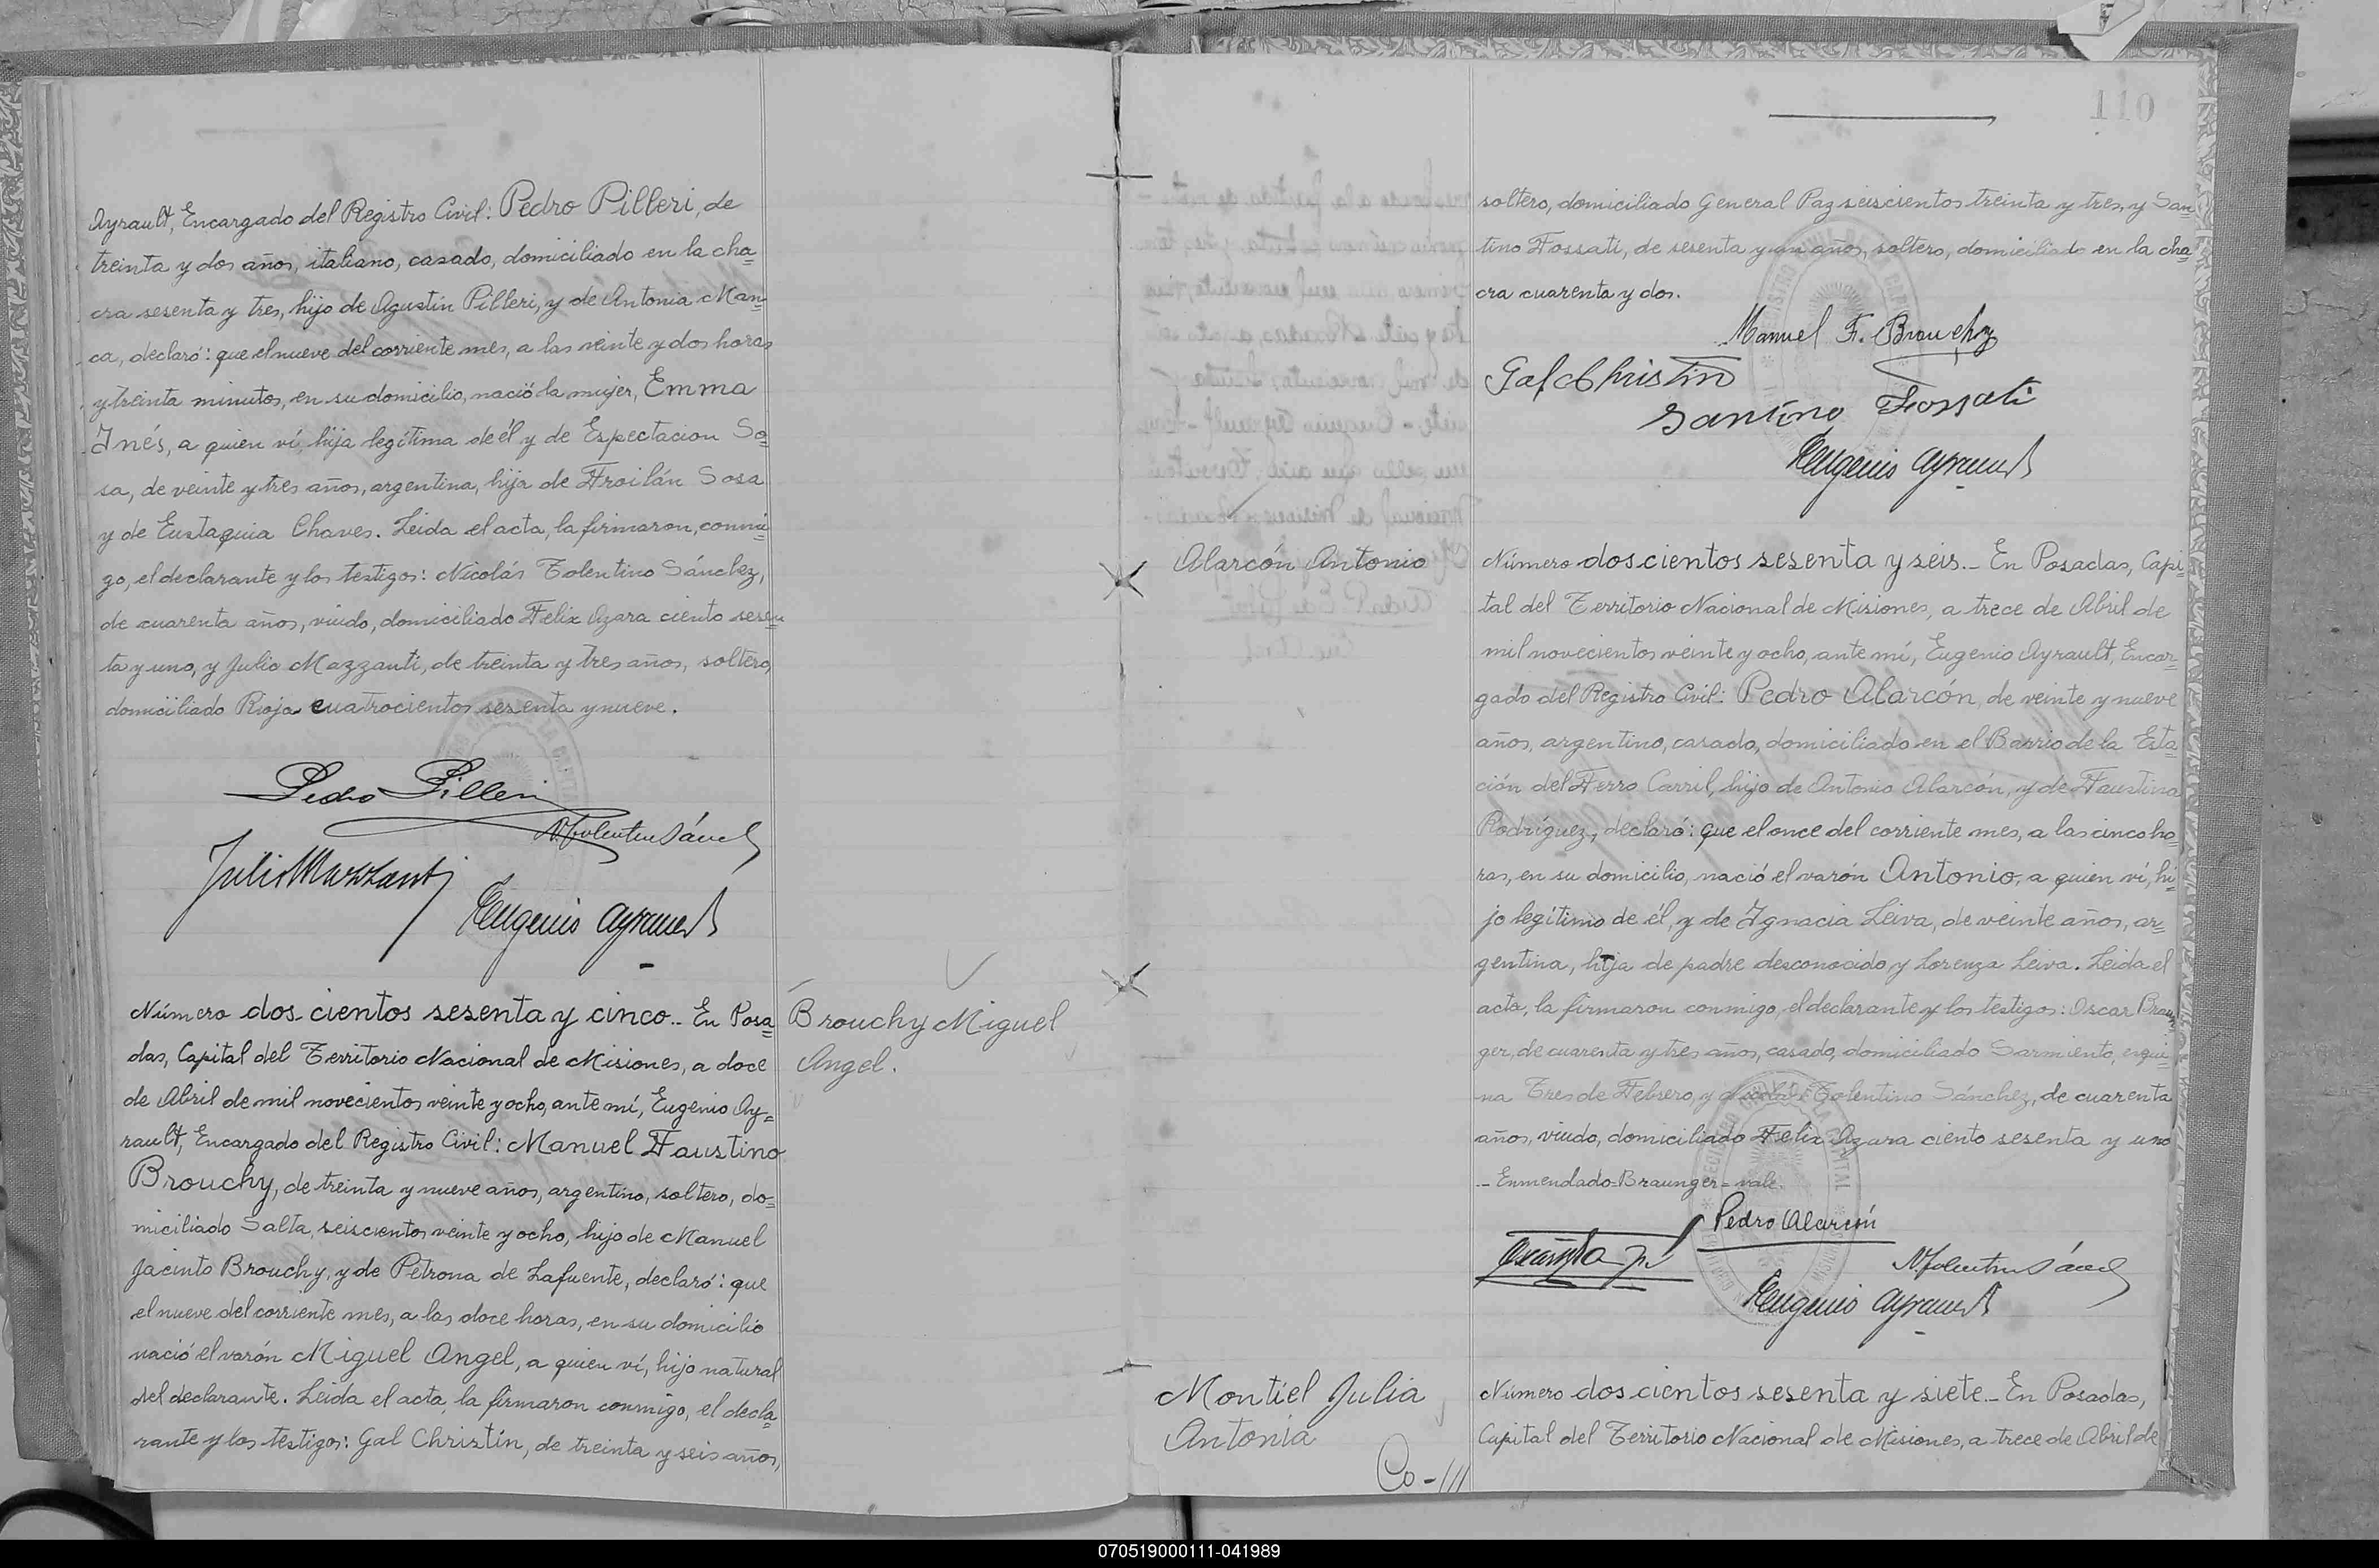 Ayrault, Encargado del Registro Civil: Pedro Pilleri, de
treinta y dos años, italiano, casado, domiciliado en la cha=
cra sesenta y tres, hijo de Agustín Pilleri, y de Antonia Man=
ca, declaró: que el nueve del corriente mes, a las veinte y dos horas
y treinta minutos, en su domicilio, nació la mujer, Emma
Inés, a quien ví, hija legítima de él y de Espectacion So=
sa, de veinte y tres años, argentina, hija de Froilán Sosa
y de Eustaquia Chaves. Leida el acta, la firmaron, conmi=
go, el declarante y los testigos: Nicolás Tolentino Sánchez,
de cuarenta años, viudo, domiciliado Felix Azara ciento sesen=
ta y uno, y Julio Mazzanti, de treinta y tres años, soltero,
domiciliado Rioja cuatrocientos sesenta y nueve.
Pedro Pilleri
N Tolentino Sánch
Julio Mazzanti
Eugenio Ayrault
Número dos cientos sesenta y cinco.. En Posa=
das, Capital del Territorio Nacional de Misiones, a doce
de Abril de mil novecientos veinte y ocho, ante mí, Eugenio Ay=
rault, Encargado del Registro Civil: Manuel Faustino
Brouchy, de treinta y nueve años, argentino, soltero, do=
miciliado Salta, seiscientos veinte y ocho, hijo de Manuel
Jacinto Brouchy, y de Petrona de Lafuente, declaró: que
el nueve del corriente mes, a las doce horas, en su domicilio
nació el varón Miguel Angel, a quien ví, hijo natural
del declarante. Leida el acta, la firmaron conmigo, el decla=
rante y los testigos: Gal Christín, de treinta y seis años,
Brouchy Miguel
Angel.
110
soltero, domiciliado General Paz seiscientos treinta y tres, y San=
tino Fossati, de sesenta y un años, soltero, domiciliado en la cha=
cra cuarenta y dos.
Manuel F. Brouchy
Gal Christin
Santino Fossati
Eugenio Ayrault
Alarcón Antonio
Número dos cientos sesenta y seis.- En Posadas, Capi=
tal del Territorio Nacional de Misiones, a trece de Abril de
mil novecientos veinte y ocho, ante mí, Eugenio Ayrault, Encar=
gado del Registro Civil: Pedro Alarcón, de veinte y nueve
años, argentino, casado, domiciliado en el Barrio de la Esta=
ción del Ferro Carril, hijo de Antonio Alarcón, y de Faustina
Rodríguez, declaró: que el once del corriente mes, a las cinco ho=
ras, en su domicilio, nació el varón Antonio, a quien ví, hi=
jo legítimo de él, y de Ignacia Leiva, de veinte años, ar=
gentina, hija de padre desconocido y Lorenza Leiva. Leida el
acta, la firmaron conmigo, el declarante y los testigos: Oscar Braun=
ger, de cuarenta y tres años, casado, domiciliado Sarmiento, esqui=
na Tres de Febrero, y Nicolás Tolentino Sánchez, de cuarenta
años, viudo, domiciliado Felix Azara ciento sesenta y uno
- Enmendado=Braunger=vale.
Pedro Alarcón
N Tolentino Sánch
Eugenio Ayrault
Montiel Julia
Antonia
Co-111
Número dos cientos sesenta y siete.- En Posadas,
Capital del Territorio Nacional de Misiones, a trece de Abril de
070519000111-041989